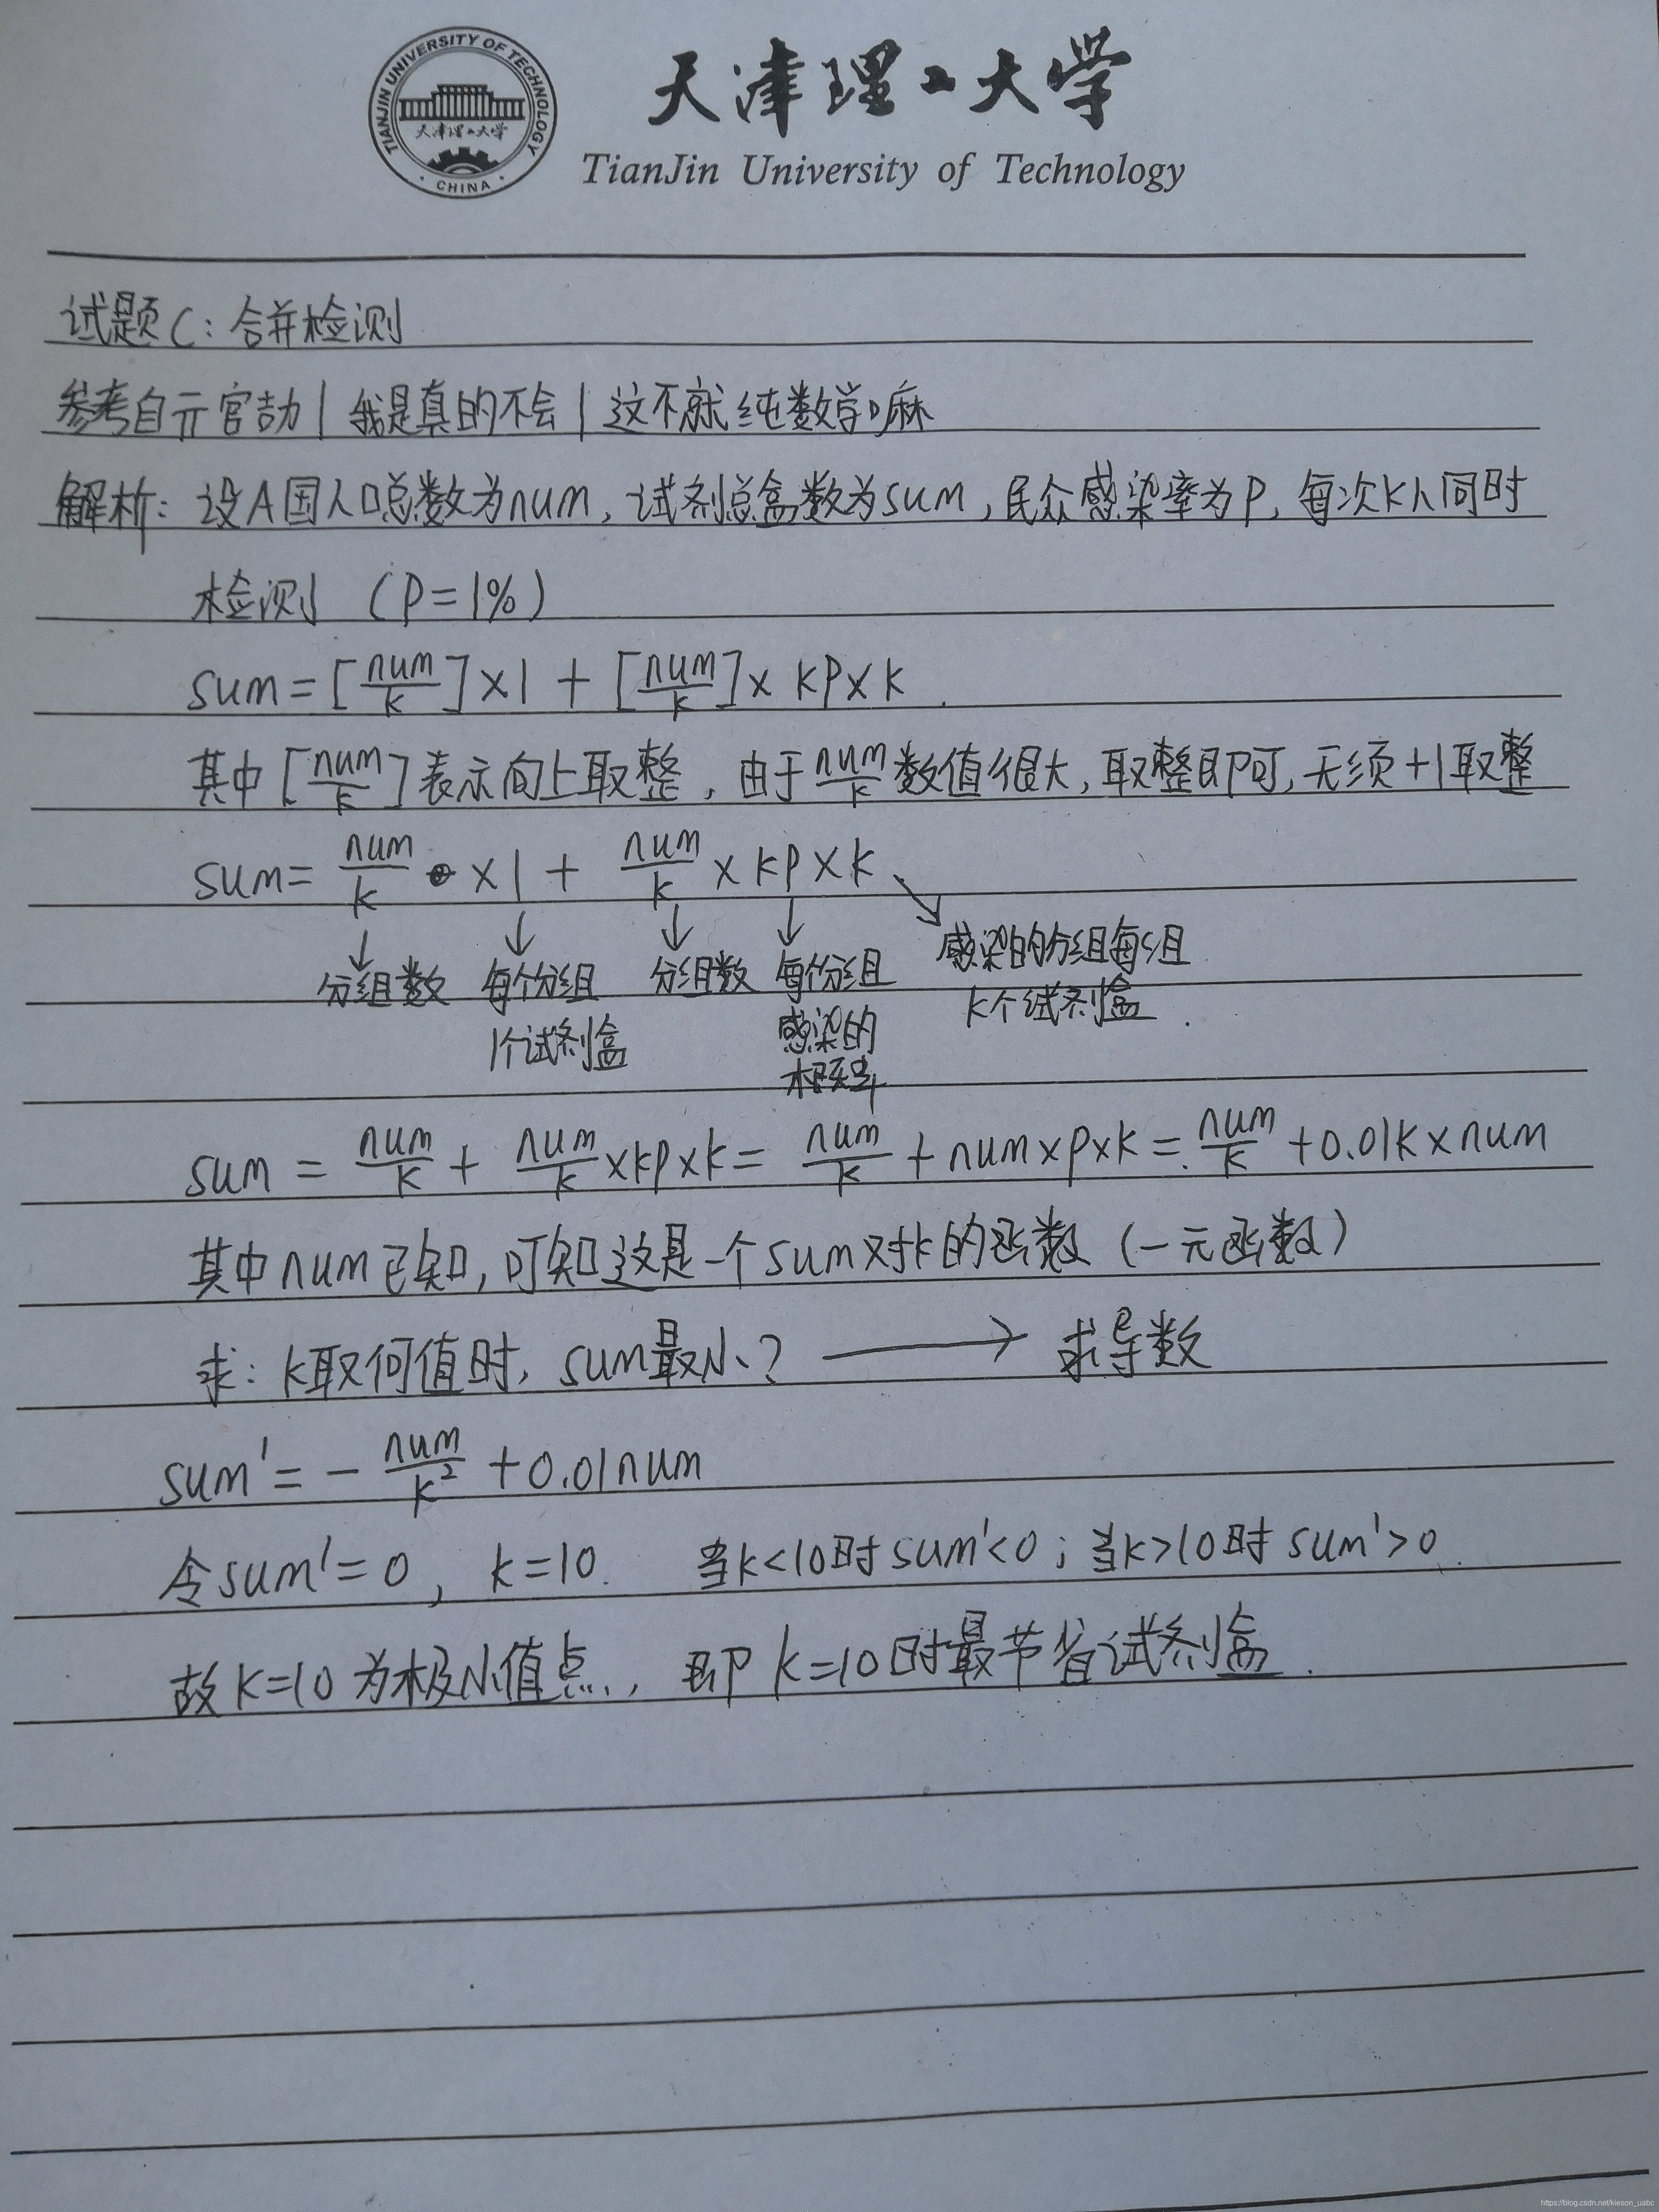 TIANJIN UNIVERSITY OF TECHNOLOGY
天津理工大学
· CHINA ·
天津理工大学
TianJin University of Technology
试题C：合并检测
参考自亓官劼|我是真的不会|这不就纯数学嘛
解析：设A国人口总数为num，试剂总盒数为sum，民众感染率为P，每次K人同时
检测 （P=1%）
sum=[num/k]×1 + [num/k]× kp×k.
其中[num/k]表示向上取整，由于num/k数值很大，取整即可，无须+1取整
sum= num/k ×1 + num/k × kp×k
分组数 每个分组 分组数 每个分组 感染的分组每组
1个试剂盒 感染的 k个试剂盒.
概率
sum = num/k + num/k×kp×k= num/k + num×p×k= num/k +0.01k×num
其中num已知，可知这是一个sum对k的函数（一元函数）
求：k取何值时，sum最小？ → 求导数
sum'= - num/k² +0.01num
令sum'=0， k=10. 当k<10时sum'<0；当k>10时sum'>0.
故K=10为极小值点，即k=10时最节省试剂盒.
https://blog.csdn.net/kieson_uabc